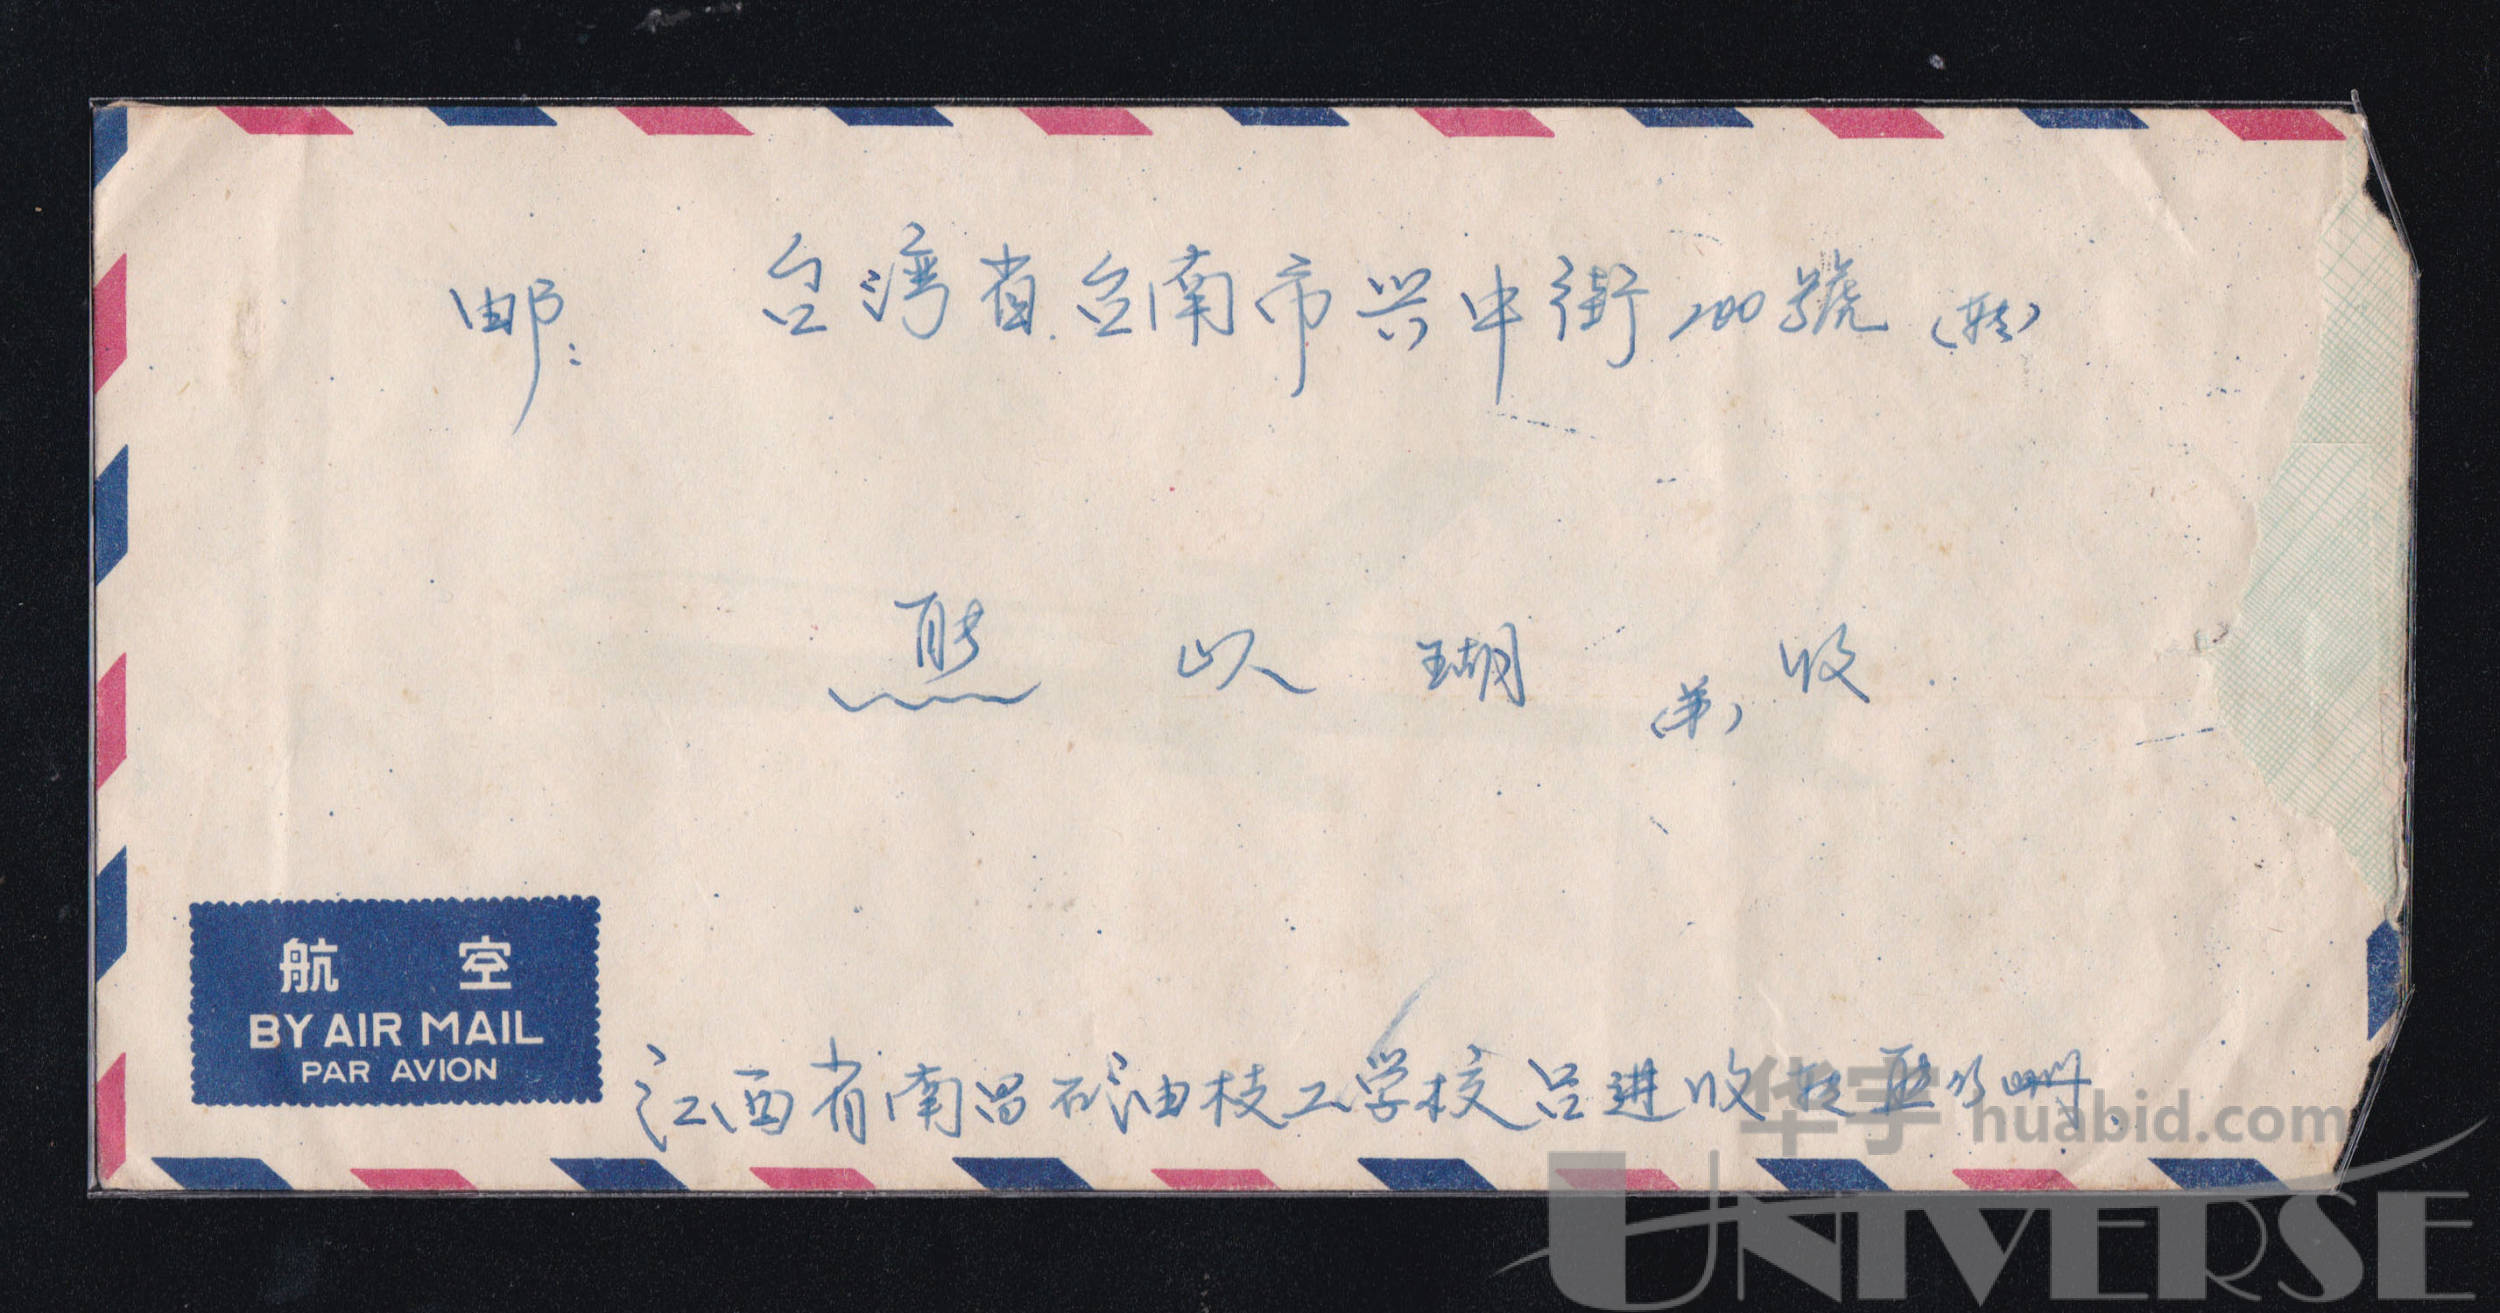 邮: 台湾省台南市兴中街200號(转)
以瑚(弟)收
航 空
BY AIR MAIL
PAR AVION
江西省南昌石油技工学校吕进收转
华宇 huabid.com
UNIVERSE